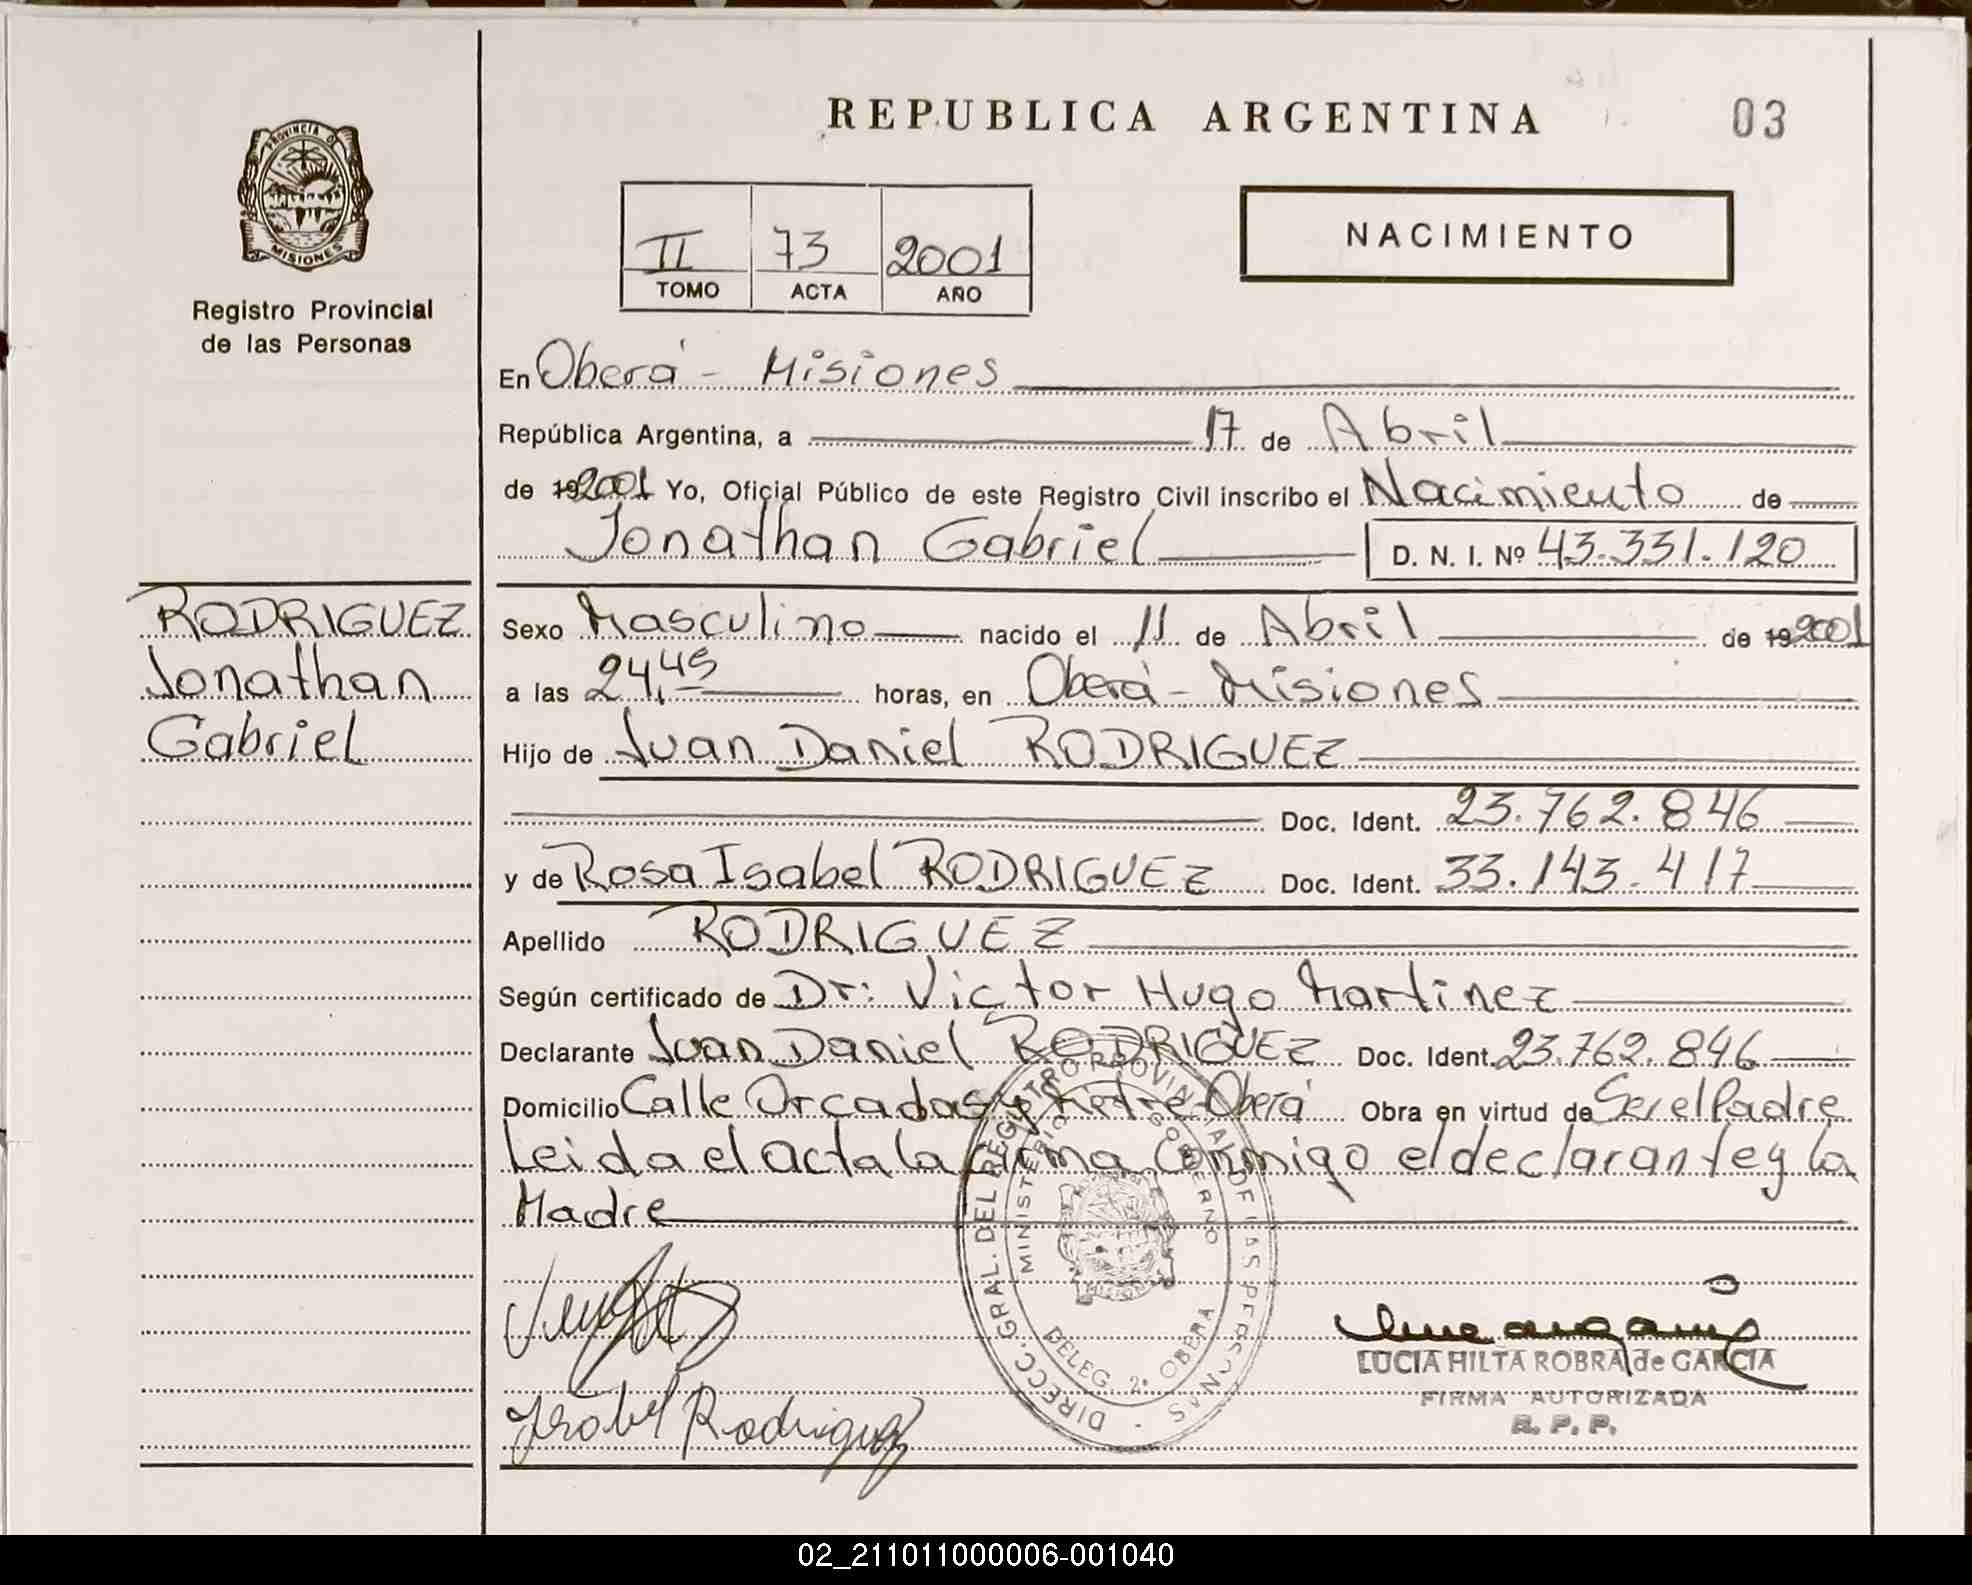 REPUBLICA ARGENTINA
03
PROVINCIA DE
MISIONES
Registro Provincial
de las Personas
II 73 2001
TOMO ACTA AÑO
NACIMIENTO
En Oberá - Misiones
República Argentina, a 17 de Abril
de 192001 Yo, Oficial Público de este Registro Civil inscribo el Nacimiento de
Jonathan Gabriel D. N. I. Nº 43.331.120
RODRIGUEZ
Jonathan
Gabriel
Sexo Masculino nacido el 11 de Abril de 192001
a las 24,45 horas, en Oberá - Misiones
Hijo de Juan Daniel RODRIGUEZ
Doc. Ident. 23.762.846
y de Rosa Isabel RODRIGUEZ Doc. Ident. 33.143.417
Apellido RODRIGUEZ
Según certificado de Dr: Victor Hugo Martinez
Declarante Juan Daniel RODRIGUEZ Doc. Ident. 23.762.846
Domicilio Calle Orcadas y Oberá Obra en virtud de Ser el Padre
Leida el acta la firma conmigo el declarante y la
Madre
DIRECC. GRAL. DEL REGISTRO PROVINCIAL DE LAS PERSONAS
MINISTERIO GOBIERNO
MISIONES
DELEG. 2ª OBERA
Isabel Rodriguez
LUCIA HILTA ROBRA de GARCIA
FIRMA AUTORIZADA
R. P. P.
02_211011000006-001040